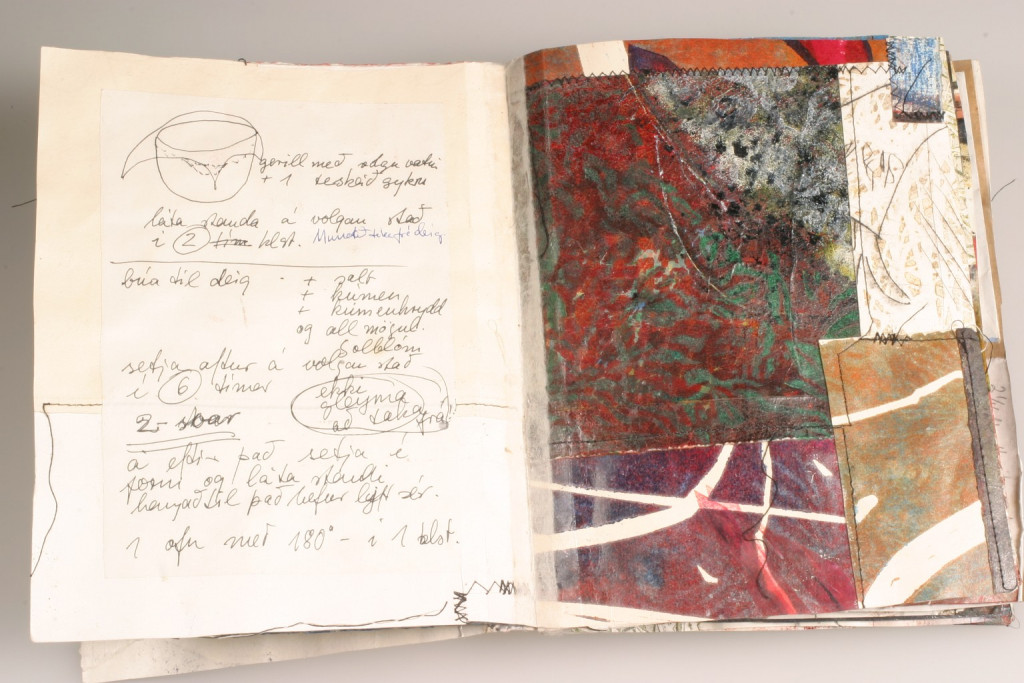 gerill með volgu vatni
+ 1 teskeið sykri
láta standa á volgan stað
i 2 klst.
búa til deig - + salt
+ kúmen
+ kúmenkrydd
og all mögul.
Solblóm
setja aftur á volgan stað
i 6 timer
ekki
gleyma
að taka frá
2-svar
á eftir það setja i
formi og láta standi
þangað til það hefur lyft sér.
1 ofn með 180° - i 1 klst.